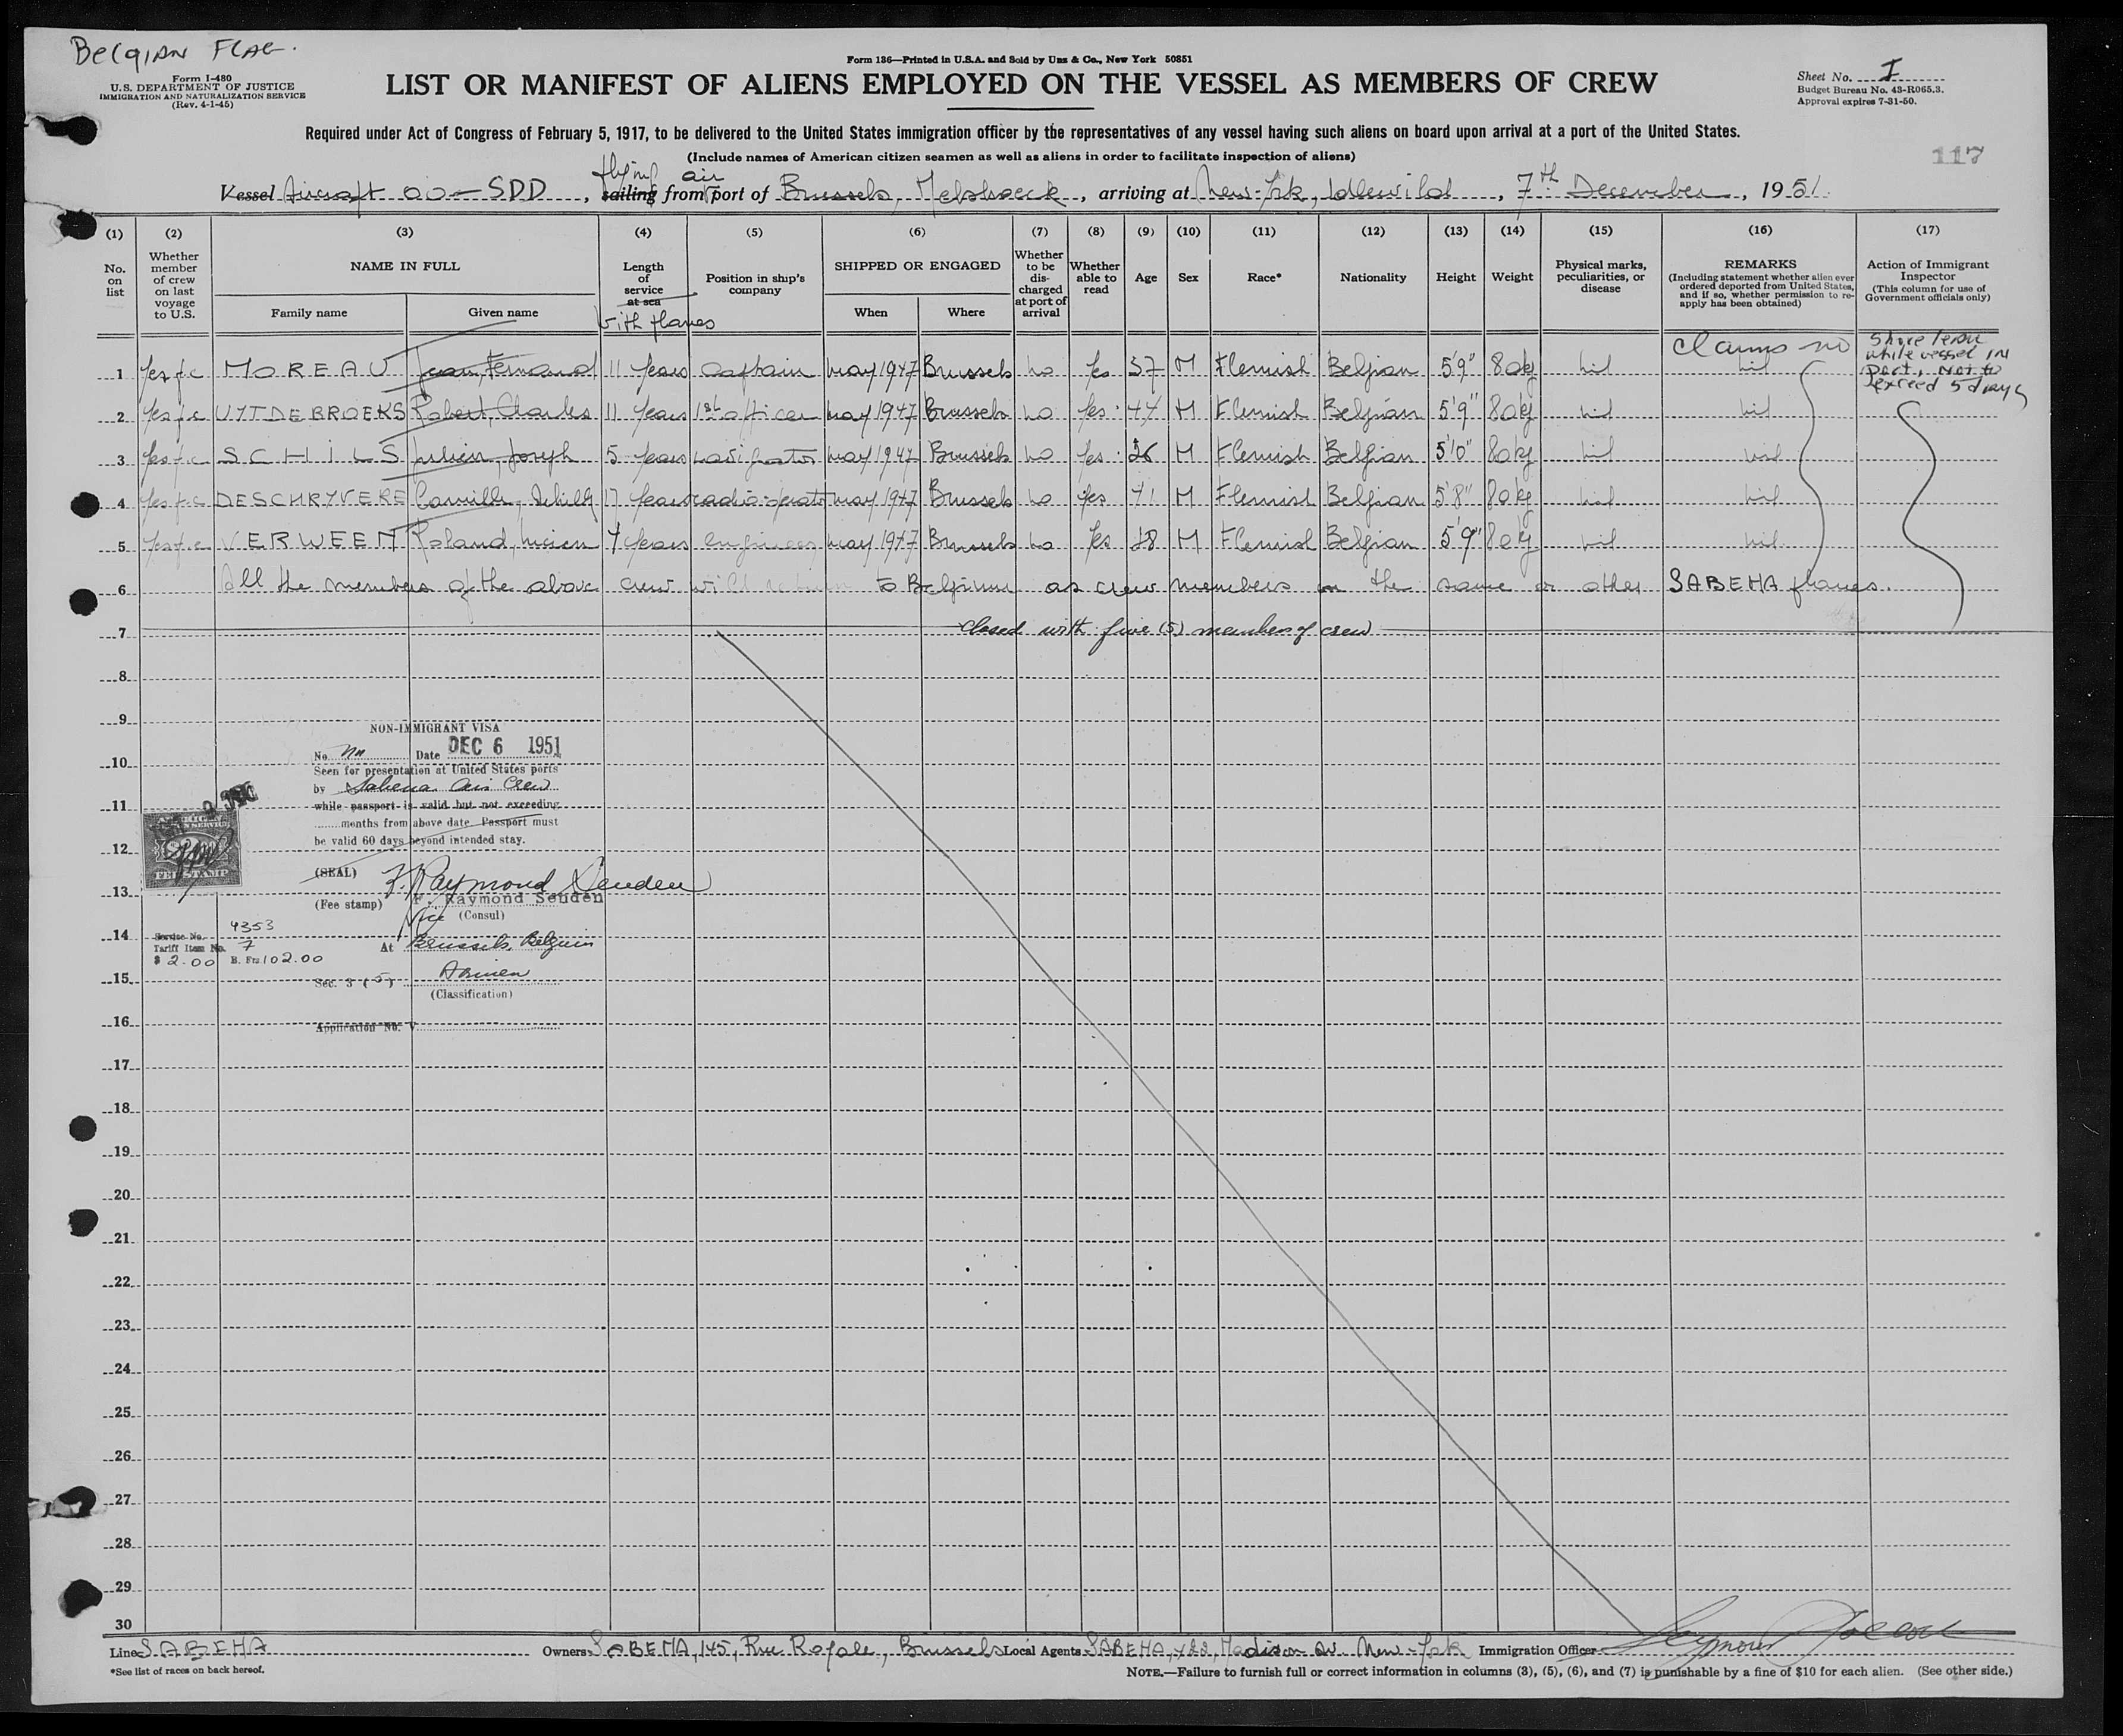 Belgian Flag.
Form I-480
U.S. DEPARTMENT OF JUSTICE
IMMIGRATION AND NATURALIZATION SERVICE
(Rev. 4-1-45)
Form 136—Printed in U.S.A. and Sold by Unz & Co., New York 50851
LIST OR MANIFEST OF ALIENS EMPLOYED ON THE VESSEL AS MEMBERS OF CREW
Sheet No. I
Budget Bureau No. 43-R065.3.
Approval expires 7-31-50.
Required under Act of Congress of February 5, 1917, to be delivered to the United States immigration officer by the representatives of any vessel having such aliens on board upon arrival at a port of the United States.
(Include names of American citizen seamen as well as aliens in order to facilitate inspection of aliens)
117
flying air
Vessel Aircraft OO-SDD, sailing from port of Brussels, Melsbroeck, arriving at New-York, Idlewild, 7th December, 1951.
(1) (2) (3) (4) (5) (6) (7) (8) (9) (10) (11) (12) (13) (14) (15) (16) (17)
No. on list
Whether member of crew on last voyage to U.S.
NAME IN FULL
Family name
Given name
Length of service at sea
with planes
Position in ship's company
SHIPPED OR ENGAGED
When
Where
Whether to be discharged at port of arrival
Whether able to read
Age
Sex
Race*
Nationality
Height
Weight
Physical marks, peculiarities, or disease
REMARKS
(Including statement whether alien ever ordered deported from United States, and if so, whether permission to reapply has been obtained)
Action of Immigrant Inspector
(This column for use of Government officials only)
claims no
Shore leave while vessel in port, not to exceed 5 days
1 Yes f.c MOREAU Jean, Fernand 11 Years Captain may 1947 Brussels no Yes 37 M Flemish Belgian 5'9" 80kg nil nil
2 Yes f.c UYTDEBROEKS Robert, Charles 11 Years 1st officer may 1947 Brussels no Yes 44 M Flemish Belgian 5'9" 80kg nil nil
3 Yes f.c SCHILS Julien, Joseph 5 Years navigator may 1947 Brussels no Yes 26 M Flemish Belgian 5'10" 80kg nil nil
4 Yes f.c DESCHRYVERE Camille, 17 Years radio-operator may 1947 Brussels no Yes 41 M Flemish Belgian 5'8" 80kg nil nil
5 Yes f.c VERWEEN Roland, Lucien 4 Years engineer may 1947 Brussels no Yes 28 M Flemish Belgian 5'9" 80kg nil nil
6 All the members of the above crew will return to Belgium as crew members on the same or other SABENA planes.
7 closed with five (5) members of crew
8
9
10
11
12
13
14
15
16
17
18
19
20
21
22
23
24
25
26
27
28
29
30
NON-IMMIGRANT VISA
No. Date DEC 6 1951
Seen for presentation at United States ports
by Sabena Air Crew
while passport is valid but not exceeding
months from above date. Passport must
be valid 60 days beyond intended stay.
(SEAL)
F. Raymond Senden
(Fee stamp) F. Raymond Senden
Vice (Consul)
At Brussels, Belgium
Sec. 3 (5) Airmen
(Classification)
Application No. V
FEE STAMP
Service No. 4353
Tariff Item No. 7
$ 2.00 B. Frs 102.00
Line SABENA Owners SABENA, 145, Rue Royale, Brussels Local Agents SABENA, 422, Madison Av. New-York Immigration Officer Seymour
*See list of races on back hereof.
NOTE.—Failure to furnish full or correct information in columns (3), (5), (6), and (7) is punishable by a fine of $10 for each alien. (See other side.)